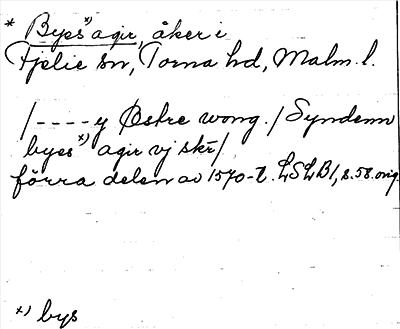 * Byes *) agir, åker i
Fjelie sn, Torna hd, Malm. l.
/ - - - - y Østre wong. / Synden
byes *) agir vj skr /
förra delen av 1570-t. LSLB 1, s. 58. orig.
*) bys